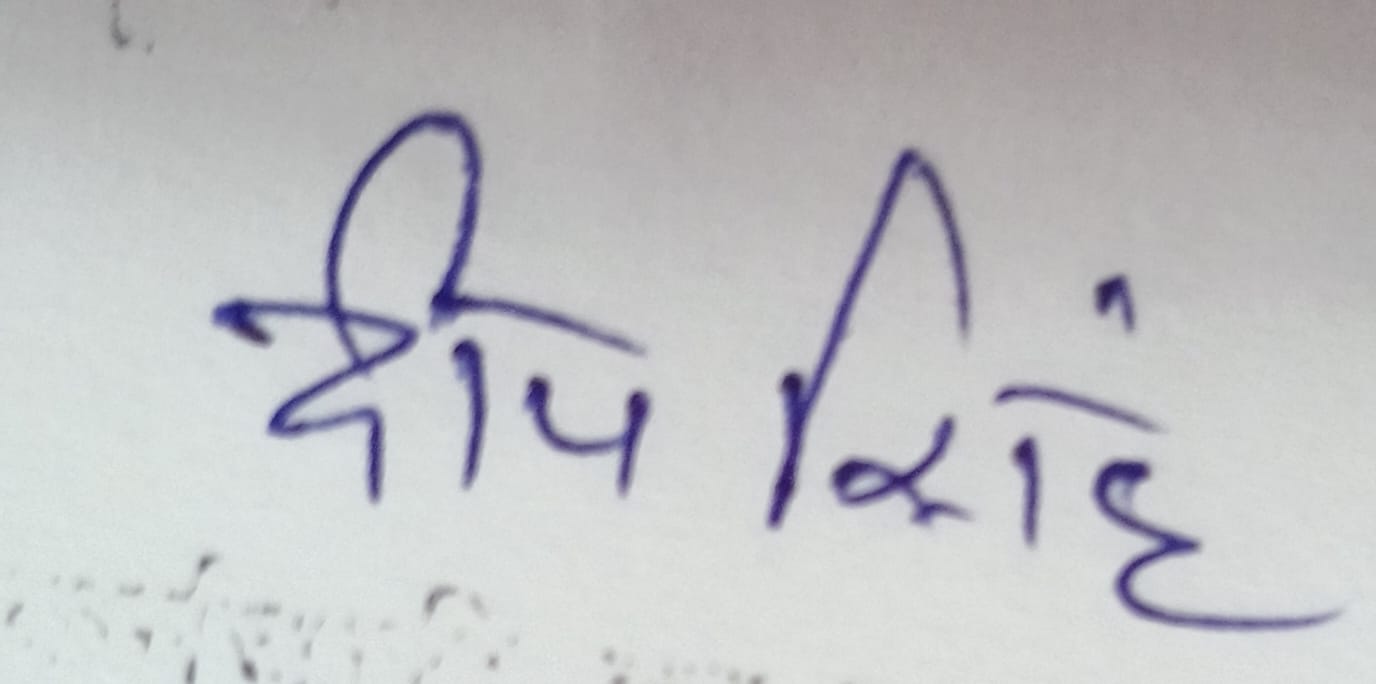 दीप सिंह